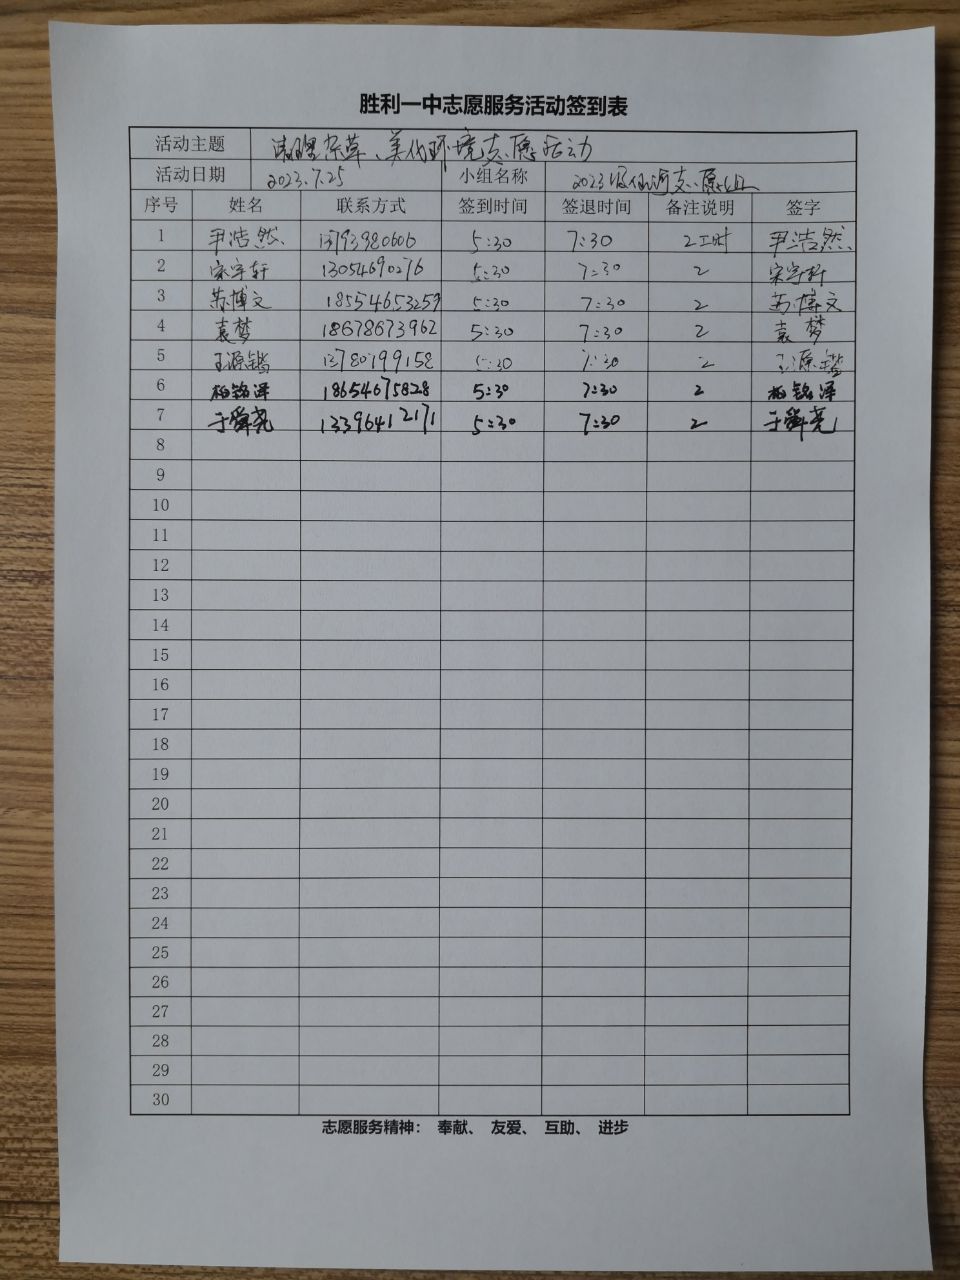 胜利一中志愿服务活动签到表
活动主题 清理杂草、美化环境志愿活动
活动日期 2023.7.25 小组名称 2023级 志愿组
序号 姓名 联系方式 签到时间 签退时间 备注说明 签字
1 尹浩然 13793980606 5:30 7:30 2工时 尹浩然
2 宋宇轩 13054690276 5:30 7:30 2 宋宇轩
3 苏博文 18554653259 5:30 7:30 2 苏博文
4 袁梦 18678673962 5:30 7:30 2 袁梦
5 王源锴 13780799158 5:30 7:30 2 王源锴
6 柏铭泽 18654675828 5:30 7:30 2 柏铭泽
7 于舜尧 13396412171 5:30 7:30 2 于舜尧
8
9
10
11
12
13
14
15
16
17
18
19
20
21
22
23
24
25
26
27
28
29
30
志愿服务精神： 奉献、 友爱、 互助、 进步